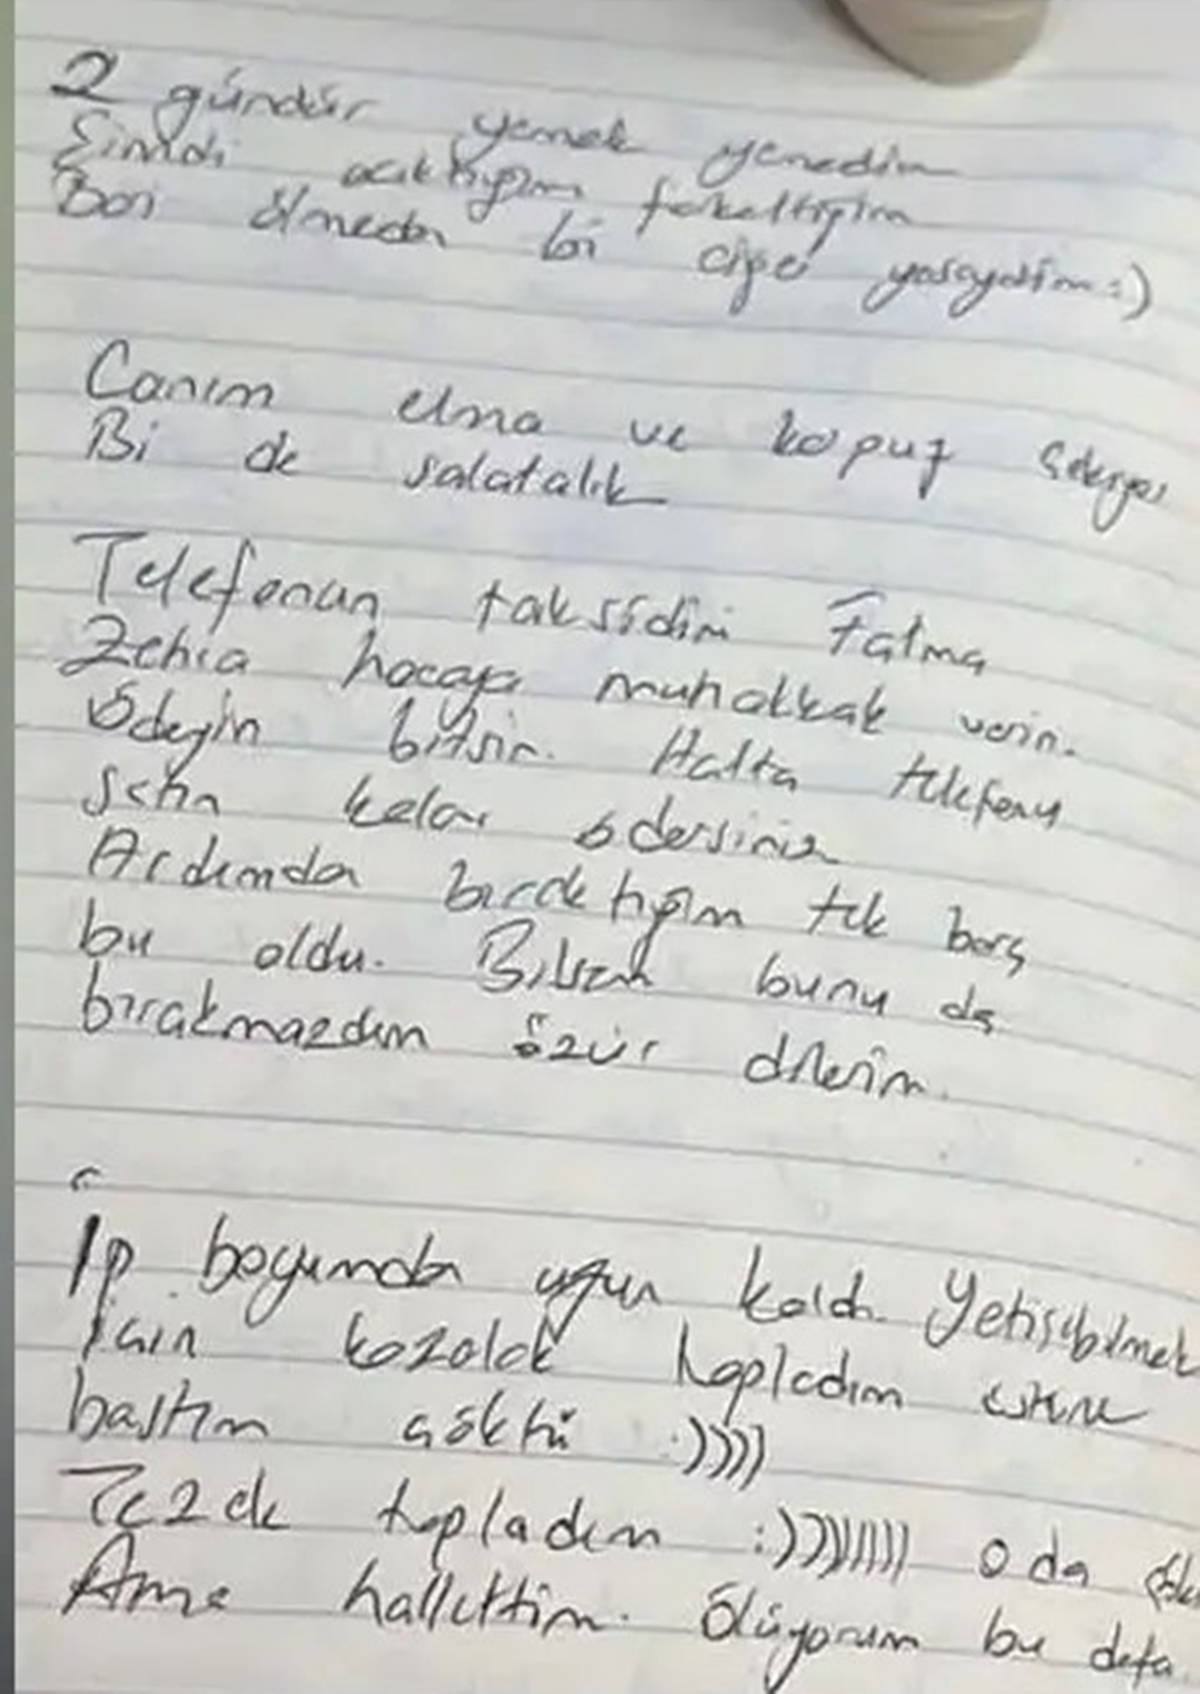 2 gündür yemek yemedim
Şimdi acıktığım farkettiğim
Bari ölmeden bi çişe yasaydım :)
Canım elma ve kapuz çekiyor
Bi de salatalık
Telefonun taksidini Fatma
Zehra hocaya muhakkak verin.
Ödeyin bitsin. Hatta telefonu
satın kalar ödersiniz
Ardımda bıraktığım tek borç
bu oldu. Bilsem bunu da
bırakmazdım özür dilerim.
İp boyumdan uzun kaldı. Yetişebilmek
için kozalak topladım üstüne
bastım çöktü :))))
Tezek topladım :))))))))) o da
Ama hallettim. Ölüyorum bu defa.